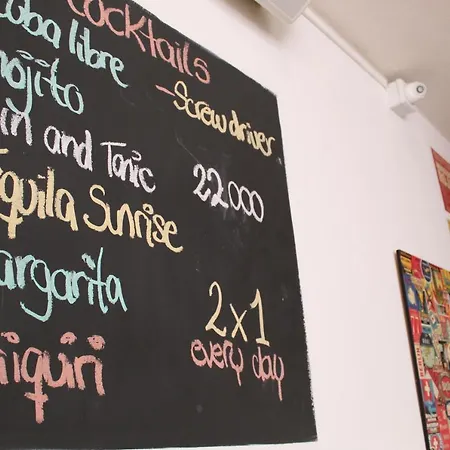 cocktails
uba libre
mojito
in and Tonic
quila Sunrise
argarita
aiquiri
- Screw driver
22000
2x1
every day